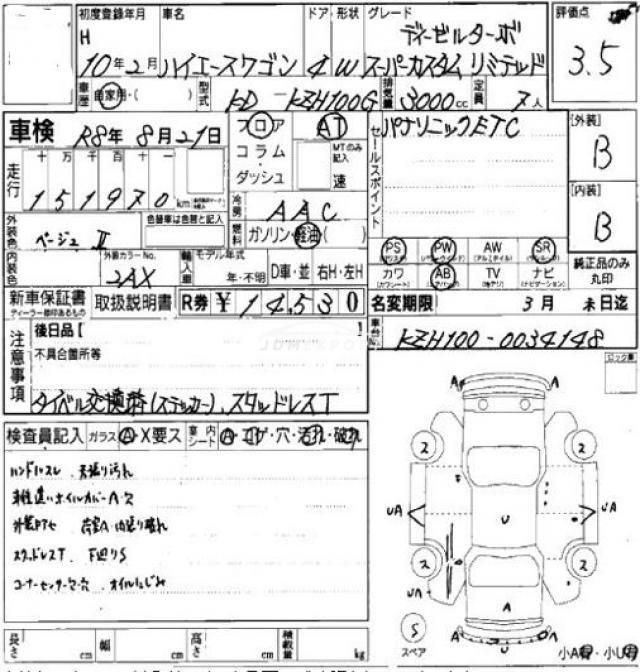 初度登録年月 車名 ドア 形状 グレード 評価点
H ディーゼルターボ
10年2月 ハイエースワゴン 4 W スーパーカスタム リミテッド 3.5
車歴 自家用・( ) 型式 KD-KZH100G 排気量 3000cc 定員 7人
車検 R8年8月21日 フロア AT セールスポイント パナソニックETC [外装]
コラム MTのみ記入 B
走行 十 万 千 百 十 一 ダッシュ 速
151970km 冷房 AAC [内装]
外装色 ベージュII 色替車は色替と記入 燃料 ガソリン・軽油( ) B
PS PW AW SR
内装色 外装カラーNo. 輸入車 モデル年式 カワ AB TV ナビ 純正品のみ丸印
2AX 年・不明 D車・並 右H・左H
新車保証書 取扱説明書 R券 ¥14,530 名変期限 3月 末日迄
ディーラー捺印あるもの
注意事項 後日品[ ] 車台No. KZH100-0034148
不具合箇所等
タイベル交換済(ステッカー)、スタッドレスT
検査員記入 ガラス A・X要ス 室内シート A・コゲ・穴・汚れ・破れ
ハンドルスレ 天張り汚れ
車種違いホイルカバーA・穴
スタッドレスT 下廻りS
コーナーセンサー穴 オイルにじみ
長さ cm 幅 cm 高さ cm 積載量 kg
A A
2 2
UA U UA
2 2
UA A
S A A
スペア U
小A・小U
JDMEXPORT